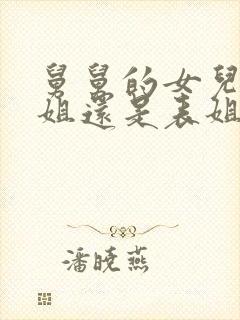 舅舅的女兒
姐還是表姐
潘曉燕